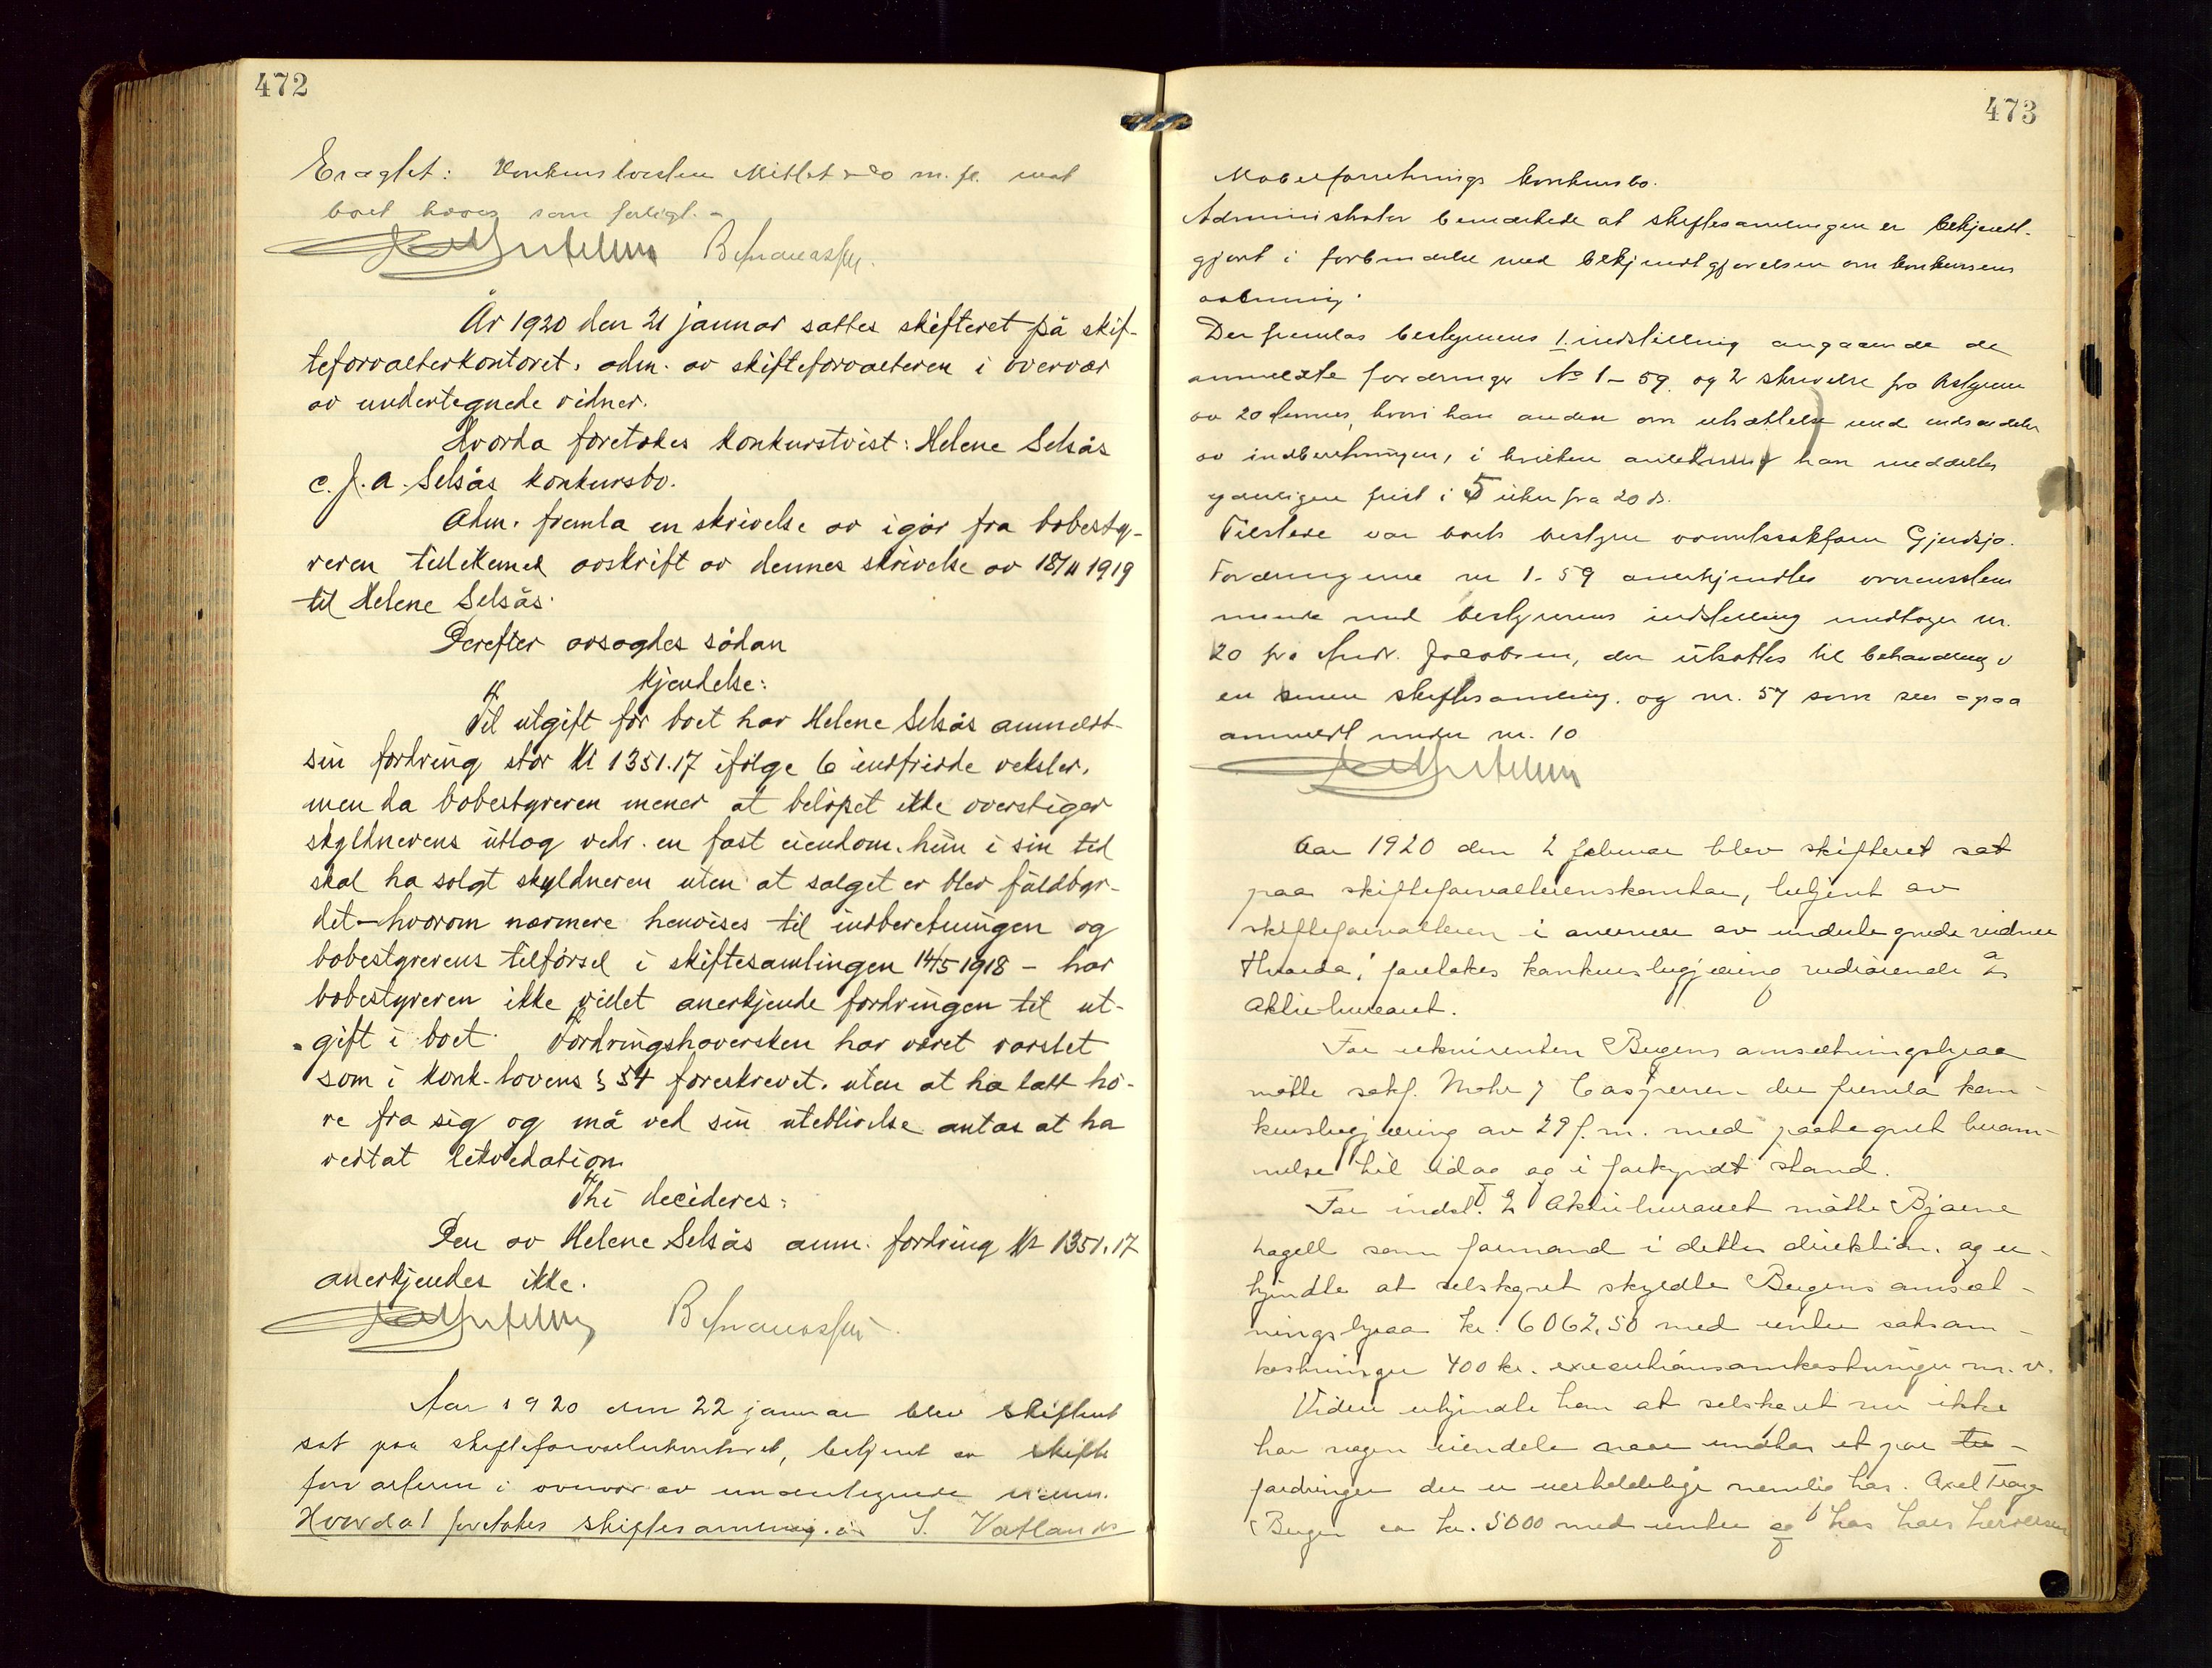 472
Eragtet: Konkurstvisten Mittet & Co m. fl. mot
boet hæves som forligt. -
År 1920 den 21 januar sattes skifteret på skif-
teforvalterkontoret, adm. av skifteforvalteren i overvær
av undertegnede vidner.
Hvorda foretokes konkurstvist: Helene Selsås
c. J. A. Selsås konkursbo.
Adm. fremla en skrivelse av igår fra bobesty-
reren tillikemed avskrift av dennes skrivelse av 18/11 1919
til Helene Selsås.
Derefter avsagdes sådan
Kjendelse:
Til utgift for boet har Helene Selsås anmeldt
sin fordring stor kr 1351.17 ifølge 6 indfridde veksler,
men da bobestyreren mener at beløpet ikke overstiger
skyldnerens utlog vedr. en fast eiendom, hun i sin tid
skal ha solgt skyldneren uten at salget er blev fuldbyr-
det – hvorom nærmere henvises til indberetningen og
bobestyrerens tilførsel i skiftesamlingen 14/5 1918 – har
bobestyreren ikke villet anerkjende fordringen til ut-
gift i boet. Fordringshaversken har været varslet
som i konk.lovens § 54 foreskrevet, uten at ha latt hø-
re fra sig og må ved sin uteblivelse antas at ha
vedtat likvidation
Thi decideres:
Den av Helene Selsås anm. fordring kr 1351.17
anerkjendes ikke.
Aar 1920 den 22 januar blev skifteret
sat paa skifteforvalterkontoret, betjent av skifte
forvalteren i overvær av undertegnede vidner.
Hvorda! foretokes skiftesamling i S. Vatlands
473
Møbelforretnings konkursbo.
Administrator bemærkede at skiftesamlingen er bekjendt-
gjort i forbindelse med bekjendtgjørelsen om konkursens
aabning.
Der fremlas bestyrerens 1. indstilling angaaende de
anmeldte fordringer No 1 – 59 og 2 skrivelse fra bestyrer
av 20 dennes, hvori han andrar om utsættelse med indsendelse
av indberetningen, i hvilken anledning han meddeltes
yderligere frist i 5 uker fra 20 ds.
Tilstede var boets bestyrer overretssakfører Gjerdsjø.
Fordringerne nr 1 - 59 anerkjendtes overensstem
mende med bestyrerens indstilling undtagen nr.
20 fra Andr. Jacobsen, der utsattes til behandling i
en senere skiftesamling, og nr. 57 som sees ogsaa
anmeldt under nr. 10
Aar 1920 den 2 februar blev skifteret sat
paa skifteforvalterenskontor, betjent av
skifteforvalteren i overvær av undertegnede vidner
Hvorda! foretokes konkursbegjæring vedrørende A/S
Aktiebureauet.
For rekvirenten Bergens omsætningsbyraa
møtte sakf. Mohr J Caspersen der fremla kon-
kursbegjæring av 29 f.m. med paategnet beram-
melse til idag og i forkyndt stand.
For indst. A/S Aktiebureauet møtte Bjarne
Hagell som formand i dettes direktion, og er-
kjendte at selskapet skyldte Bergens omsæt-
ningsbyraa kr. 6062,50 med renter saksom-
kostninger 400 kr. executionsomkostninger m.v.
Videre erkjendte han at selskapet nu ikke
har nogen eiendele mere undtar et par
fordringer der er uerholdelige nemlig hos. Axel
Bergen ca kr. 5000 med renter og hos Lars